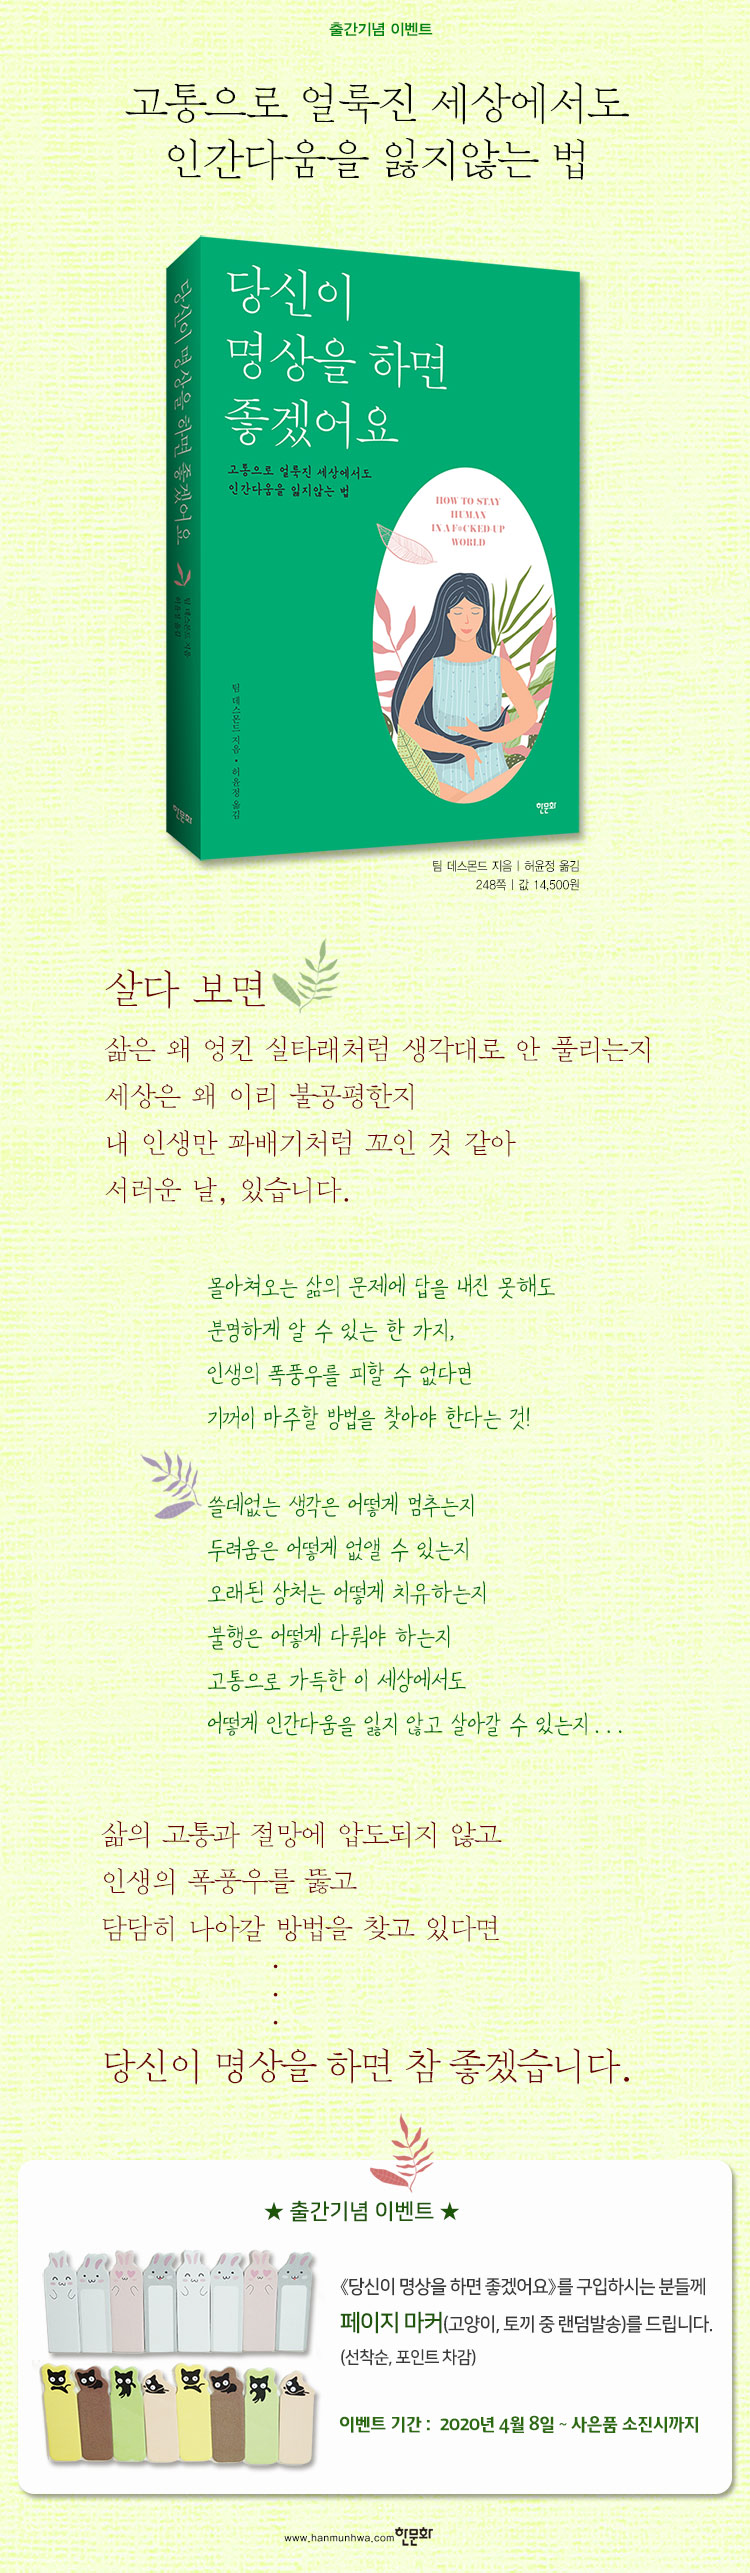 출간기념 이벤트
고통으로 얼룩진 세상에서도
인간다움을 잃지않는 법
당신이 명상을 하면 좋겠어요
팀 데스몬드 지음
허윤정 옮김
한문화
당신이
명상을 하면
좋겠어요
고통으로 얼룩진 세상에서도
인간다움을 잃지않는 법
HOW TO STAY
HUMAN
IN A F*CKED-UP
WORLD
팀 데스몬드 지음 • 허윤정 옮김
한문화
팀 데스몬드 지음 | 허윤정 옮김
248쪽 | 값 14,500원
살다 보면
삶은 왜 엉킨 실타래처럼 생각대로 안 풀리는지
세상은 왜 이리 불공평한지
내 인생만 꽈배기처럼 꼬인 것 같아
서러운 날, 있습니다.
몰아쳐오는 삶의 문제에 답을 내진 못해도
분명하게 알 수 있는 한 가지,
인생의 폭풍우를 피할 수 없다면
기꺼이 마주할 방법을 찾아야 한다는 것!
쓸데없는 생각은 어떻게 멈추는지
두려움은 어떻게 없앨 수 있는지
오래된 상처는 어떻게 치유하는지
불행은 어떻게 다뤄야 하는지
고통으로 가득한 이 세상에서도
어떻게 인간다움을 잃지 않고 살아갈 수 있는지...
삶의 고통과 절망에 압도되지 않고
인생의 폭풍우를 뚫고
담담히 나아갈 방법을 찾고 있다면
.
.
.
당신이 명상을 하면 참 좋겠습니다.
★ 출간기념 이벤트 ★
《당신이 명상을 하면 좋겠어요》를 구입하시는 분들께
페이지 마커(고양이, 토끼 중 랜덤발송)를 드립니다.
(선착순, 포인트 차감)
이벤트 기간 : 2020년 4월 8일 ~ 사은품 소진시까지
www.hanmunhwa.com 한문화